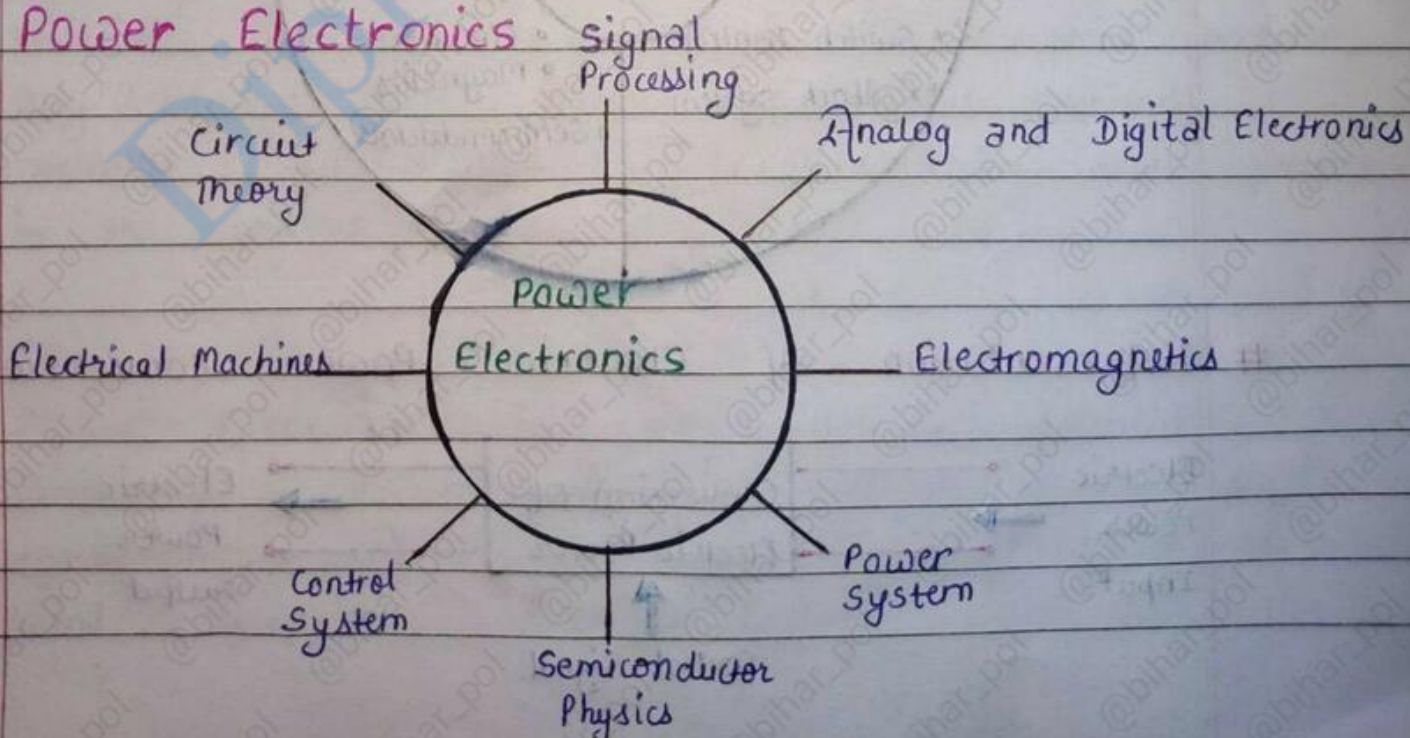 Power Electronics.
Signal
Processing
Circuit
Theory
Analog and Digital Electronics
Power
Electronics
Electrical Machines
Electromagnetics
Control
System
Power
System
Semiconductor
Physics
@bihar_pol